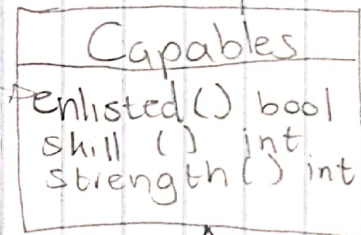 Capables
enlisted() bool
skill () int
strength() int